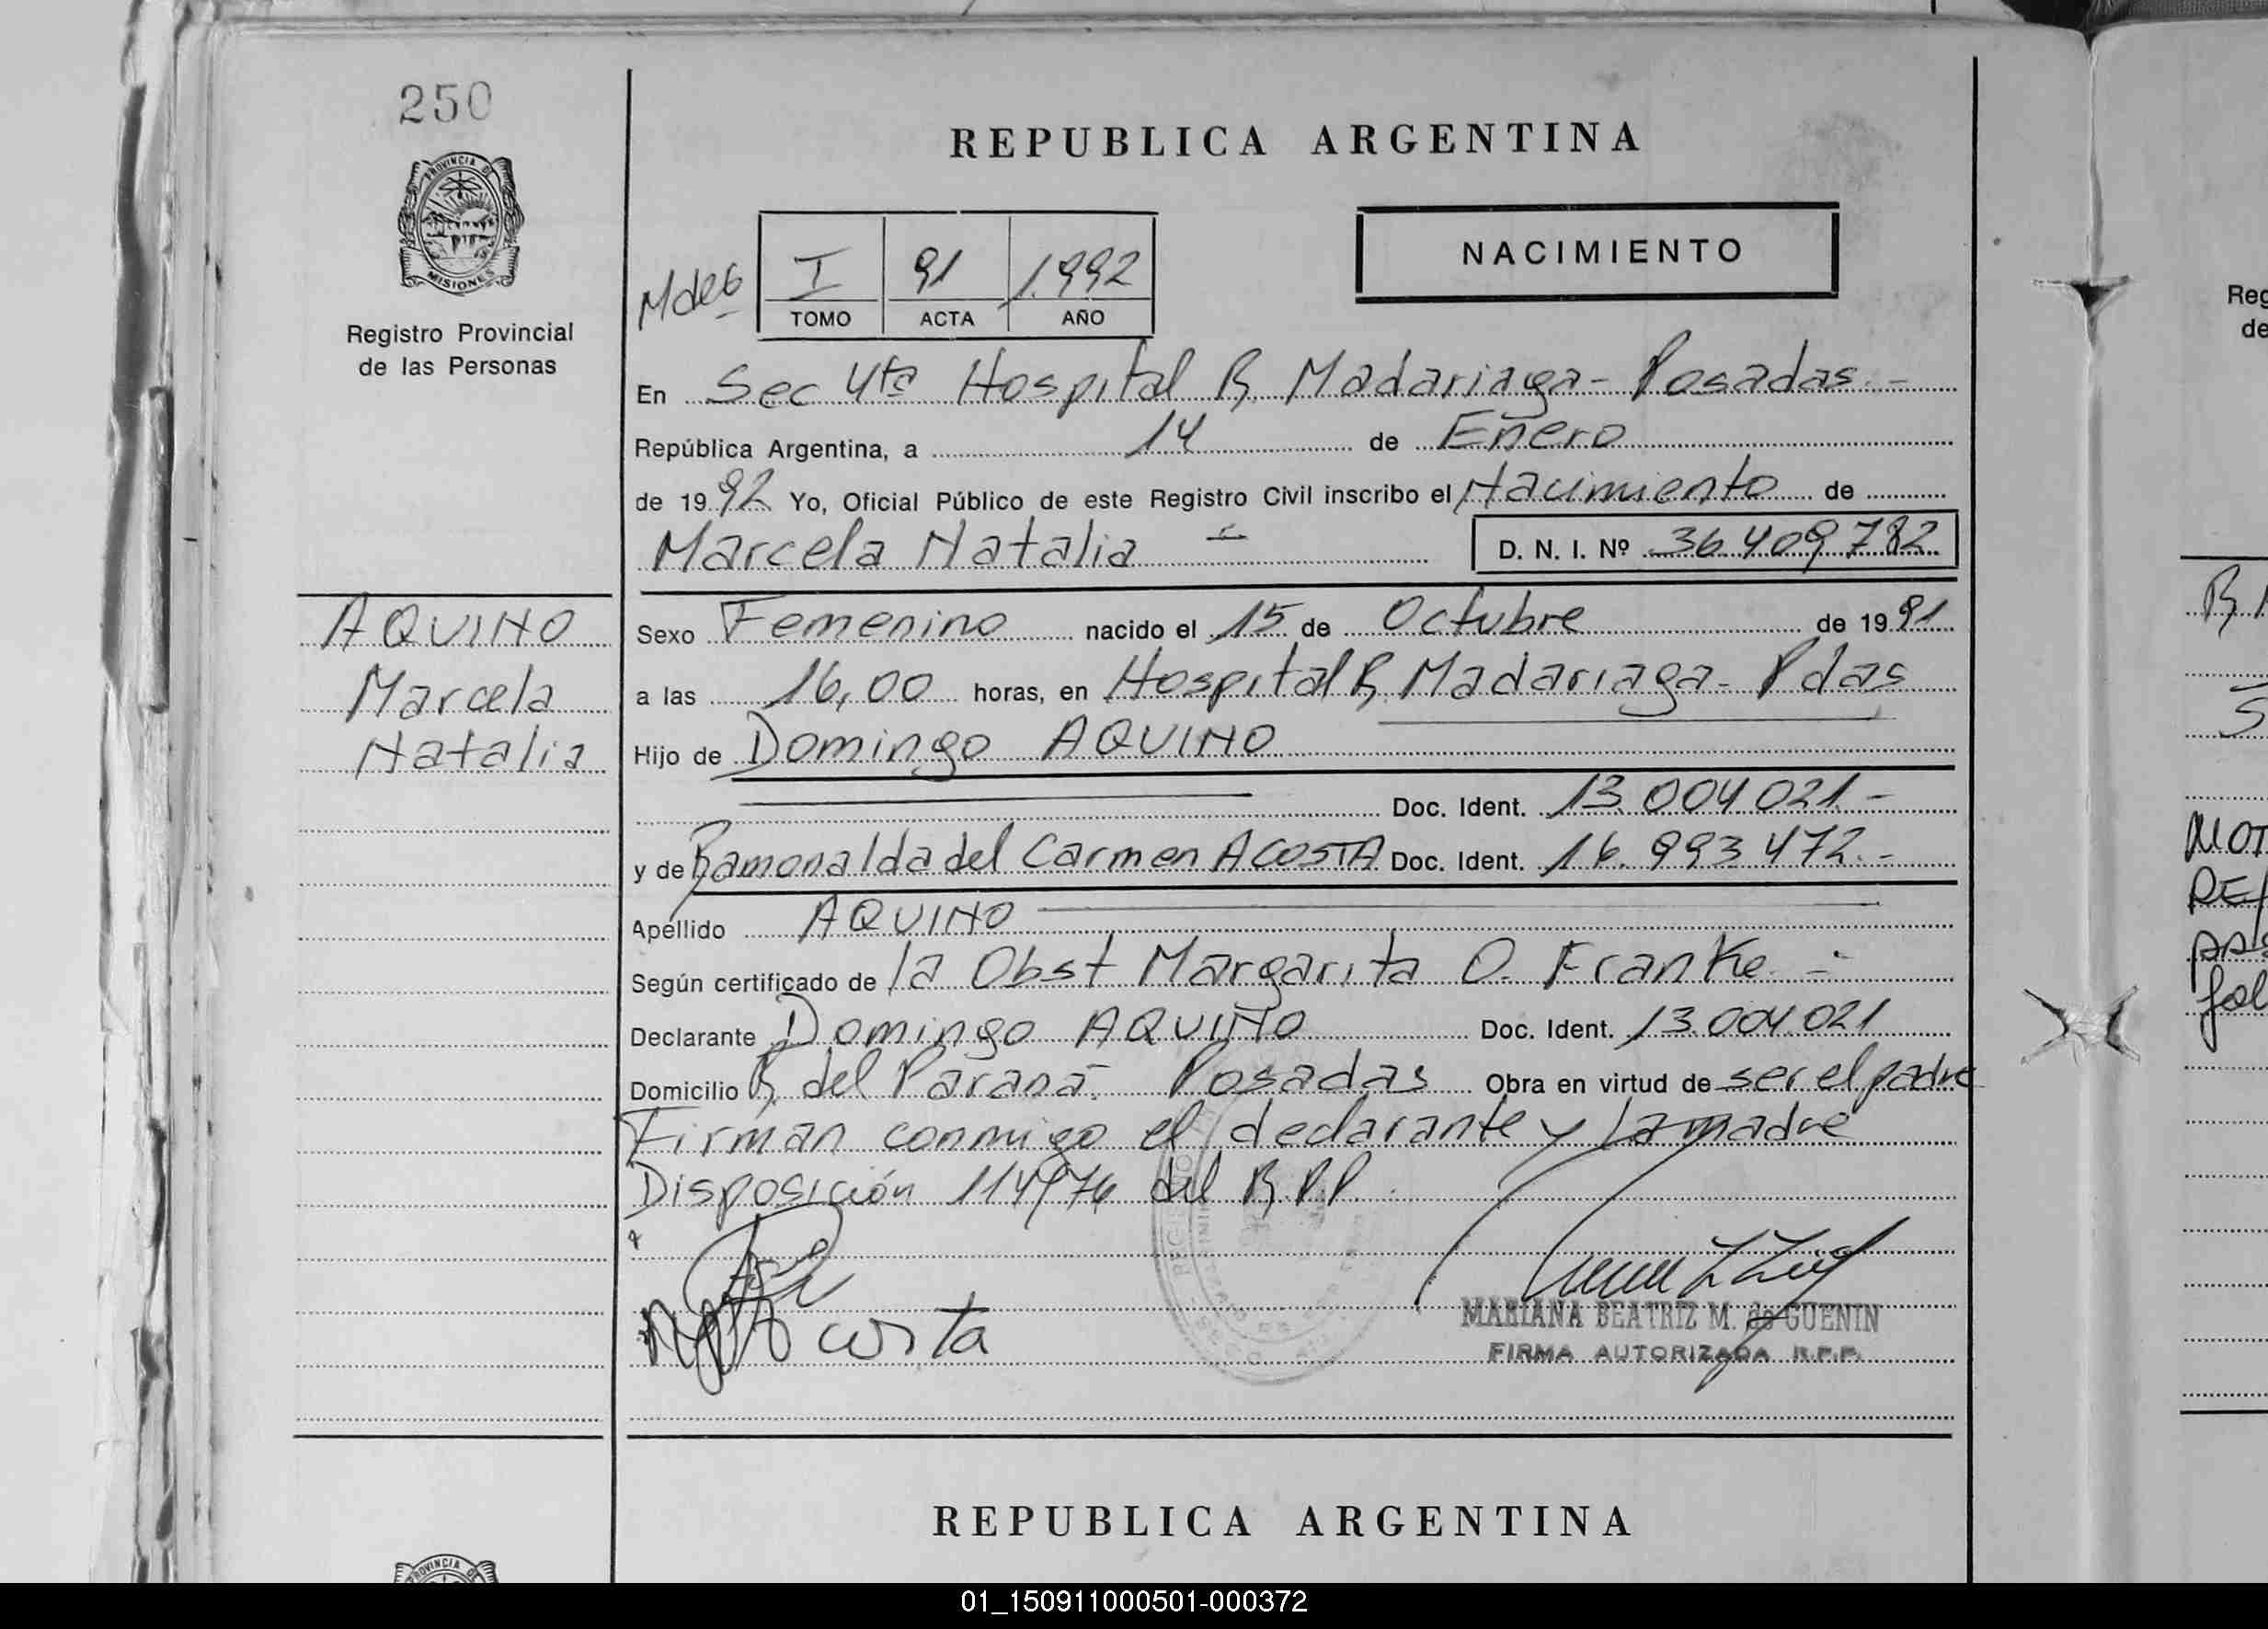 250
PROVINCIA DE
MISIONES
Registro Provincial
de las Personas
REPUBLICA ARGENTINA
NACIMIENTO
I 91 1.992
TOMO ACTA AÑO
En Sec 4ta Hospital R. Madariaga - Posadas. -
República Argentina, a 14 de Enero
de 19 92 Yo, Oficial Público de este Registro Civil inscribo el Nacimiento de
Marcela Natalia D. N. I. Nº 36.409.782
AQUINO
Marcela
Natalia
Sexo Femenino nacido el 15 de Octubre de 19 91
a las 16,00 horas, en Hospital R. Madariaga - Pdas
Hijo de Domingo AQUINO
Doc. Ident. 13.004.021.-
y de Ramona Ida del Carmen ACOSTA Doc. Ident. 16.993.472.-
Apellido AQUINO
Según certificado de la Obst Margarita O. Franke
Declarante Domingo AQUINO Doc. Ident. 13.004.021
Domicilio R. del Paraná. Posadas Obra en virtud de ser el padre
Firman conmigo el declarante y la madre
Disposición 114/76 del R.P.P.
Acosta
MARIANA BEATRIZ M. de GUENIN
FIRMA AUTORIZADA R.P.P.
REPUBLICA ARGENTINA
PROVINCIA DE
01_150911000501-000372